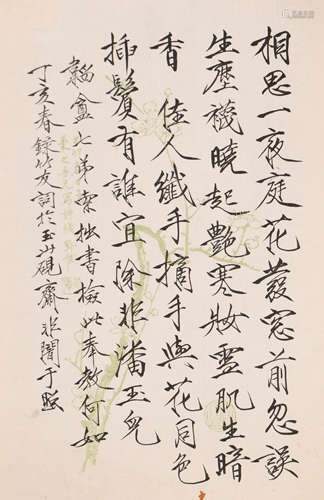 相思一夜庭花發窓前忽誤
生塵襪曉起艷寒妝雪肌生暗
香佳人纖手摘手與花同色
插鬢有誰宜除非潘玉兒
盦七弟索拙書檢此奉教何如
丁亥春録竹友詞於玉硯齋非闇于照